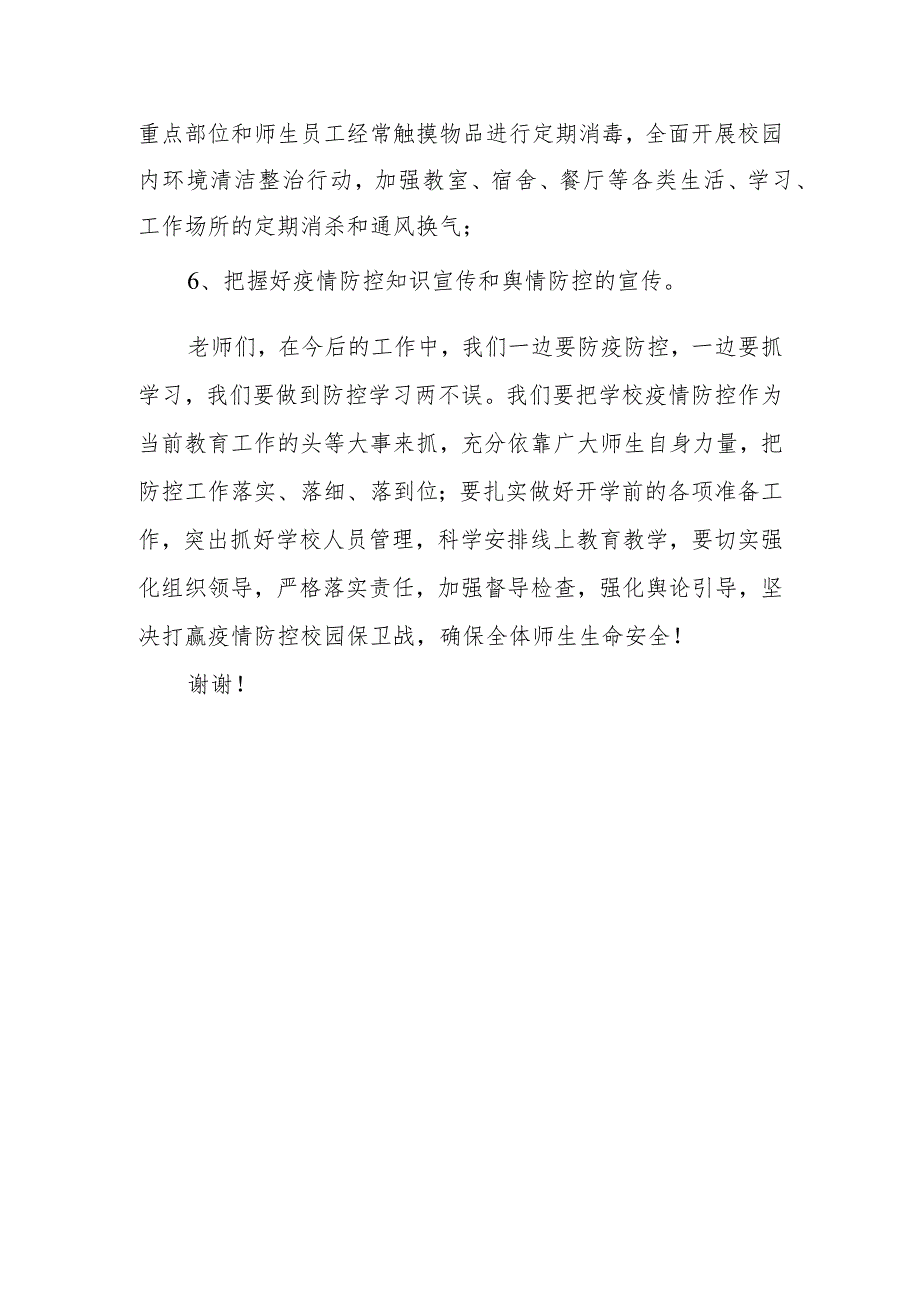 重点部位和师生员工经常触摸物品进行定期消毒，全面开展校园
内环境清洁整治行动，加强教室、宿舍、餐厅等各类生活、学习、
工作场所的定期消杀和通风换气；
6、把握好疫情防控知识宣传和舆情防控的宣传。
老师们，在今后的工作中，我们一边要防疫防控，一边要抓
学习，我们要做到防控学习两不误。我们要把学校疫情防控作为
当前教育工作的头等大事来抓，充分依靠广大师生自身力量，把
防控工作落实、落细、落到位；要扎实做好开学前的各项准备工
作，突出抓好学校人员管理，科学安排线上教育教学，要切实强
化组织领导，严格落实责任，加强督导检查，强化舆论引导，坚
决打赢疫情防控校园保卫战，确保全体师生生命安全！
谢谢！